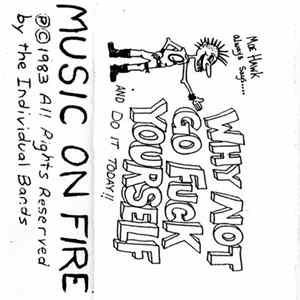 MUSIC ON FIRE
℗©1983 All Rights Reserved
by the Individual Bands
MOE HAWK
always says....
WHY NOT
GO FUCK
YOURSELF
AND DO IT TODAY!!